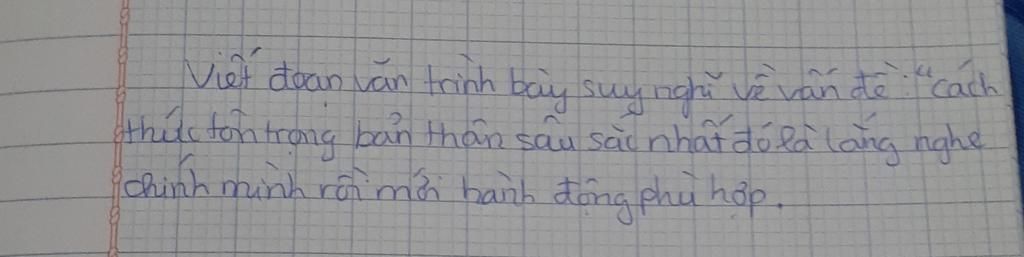 Viết đoạn văn trình bày suy nghĩ về vấn đề: "cách
thức tôn trọng bản thân sâu sắc nhất đó là lắng nghe
chính mình rồi mới hành động phù hợp.